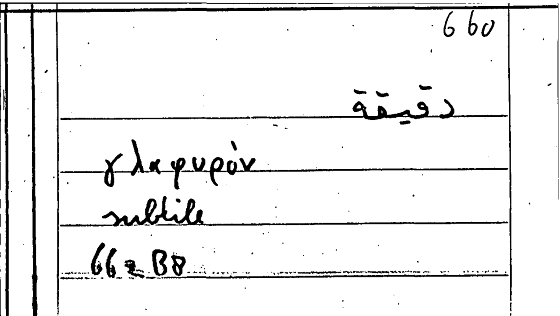 660
دقيقة
γλαφυρόν
subtile
662 B8